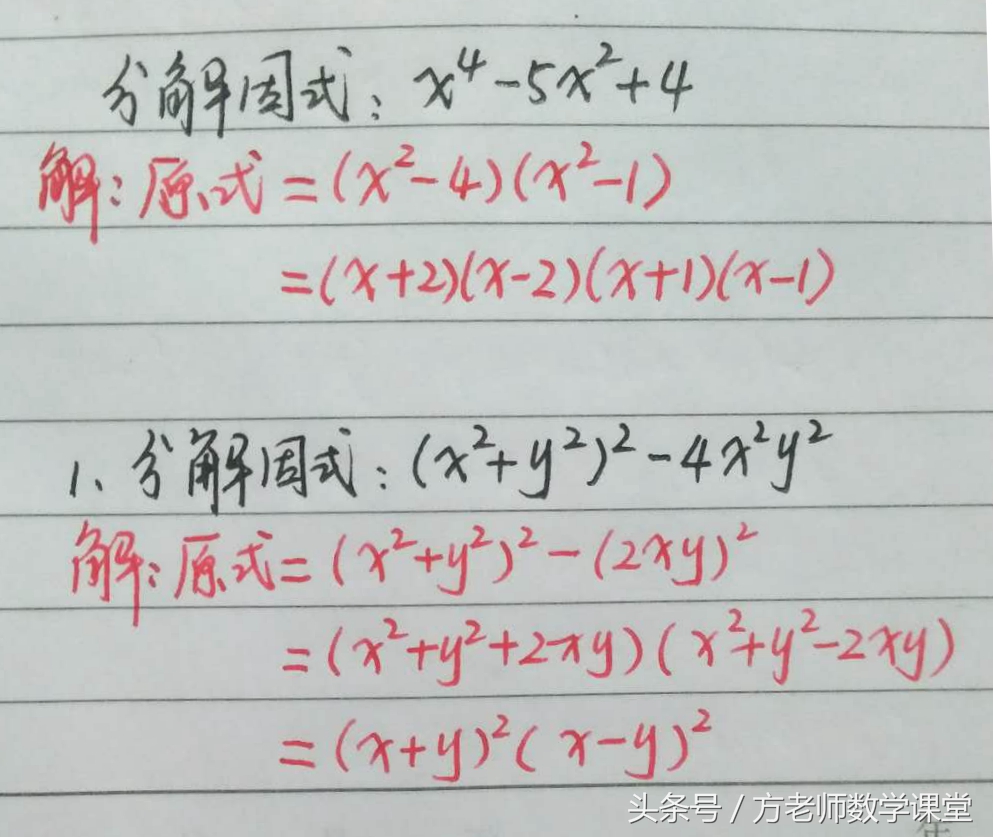 分解因式：x⁴-5x²+4
解：原式=(x²-4)(x²-1)
=(x+2)(x-2)(x+1)(x-1)
1、分解因式：(x²+y²)²-4x²y²
解：原式=(x²+y²)²-(2xy)²
=(x²+y²+2xy)(x²+y²-2xy)
=(x+y)²(x-y)²
头条号 / 方老师数学课堂